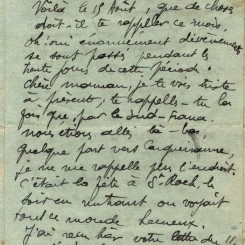 Voilà le 15 Août, que de choses
doit-il te rappeler ce mois,
Oh! oui énormément d'évènements
se sont passés pendant les
trente jours de cette période.
Chère maman, je te vois triste
à présent, te rappelle-tu la
fois que, par le Sud-France
nous étions allés là-bas,
quelque part vers Carqueiranne,
je ne me rappelle plus l'endroit,
c'était la fête à St Roch, le
soir en rentrant on voyait
tout ce monde heureux.
J'ai reçu hier votre lettre du 11